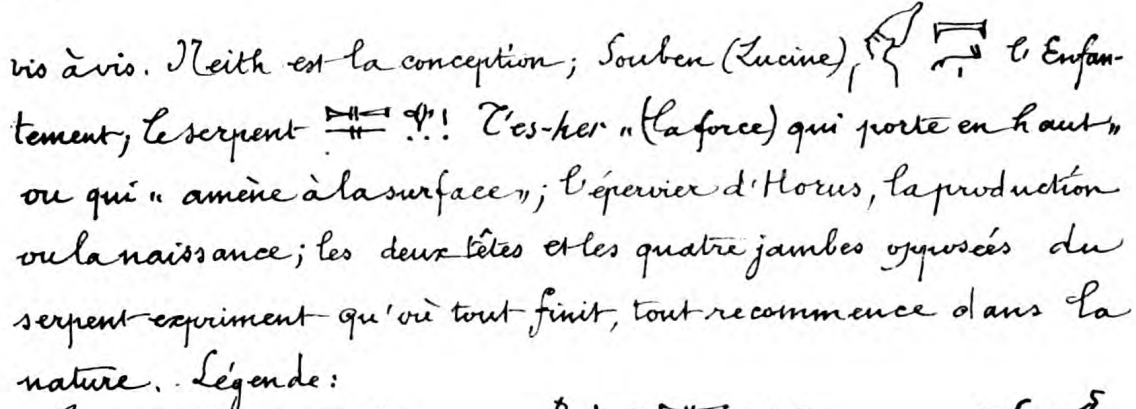 vis à vis. Neith est la conception; Souben (Lucine), l'Enfan-
tement; le serpent ! T'es-her « (la force) qui porte en haut »
ou qui « amène à la surface »; l'épervier d'Horus, la production
ou la naissance; les deux têtes et les quatre jambes opposées du
serpent expriment qu'où tout finit, tout recommence dans la
nature. Légende: